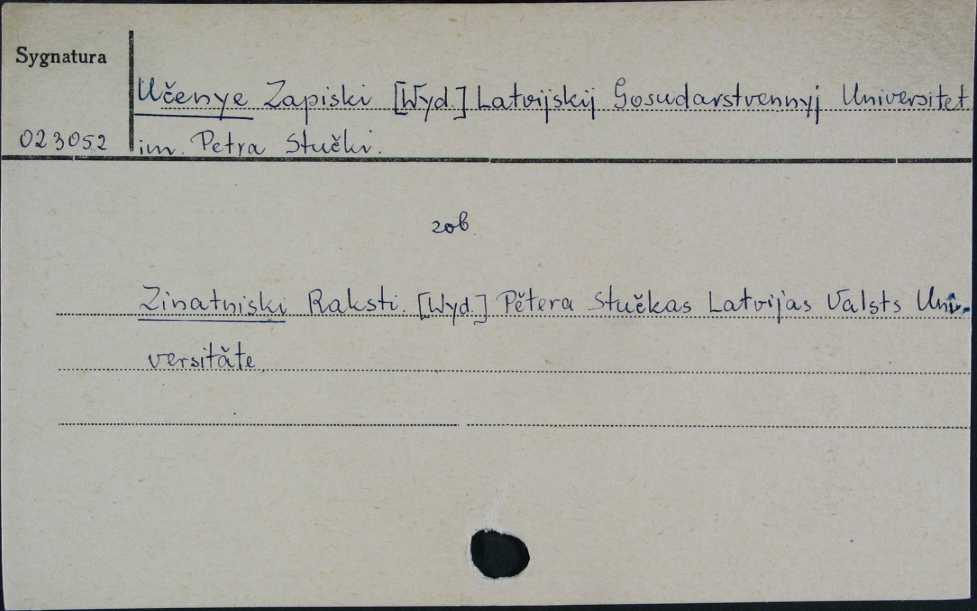 Sygnatura
Učenye Zapiski [Wyd.] Latvijskij Gosudarstvennyj Universitet
023052 im. Petra Stučki.
zob.
Zinatniski Raksti. [Wyd.] Pětera Stučkas Latvijas Valsts Uni-
versităte.